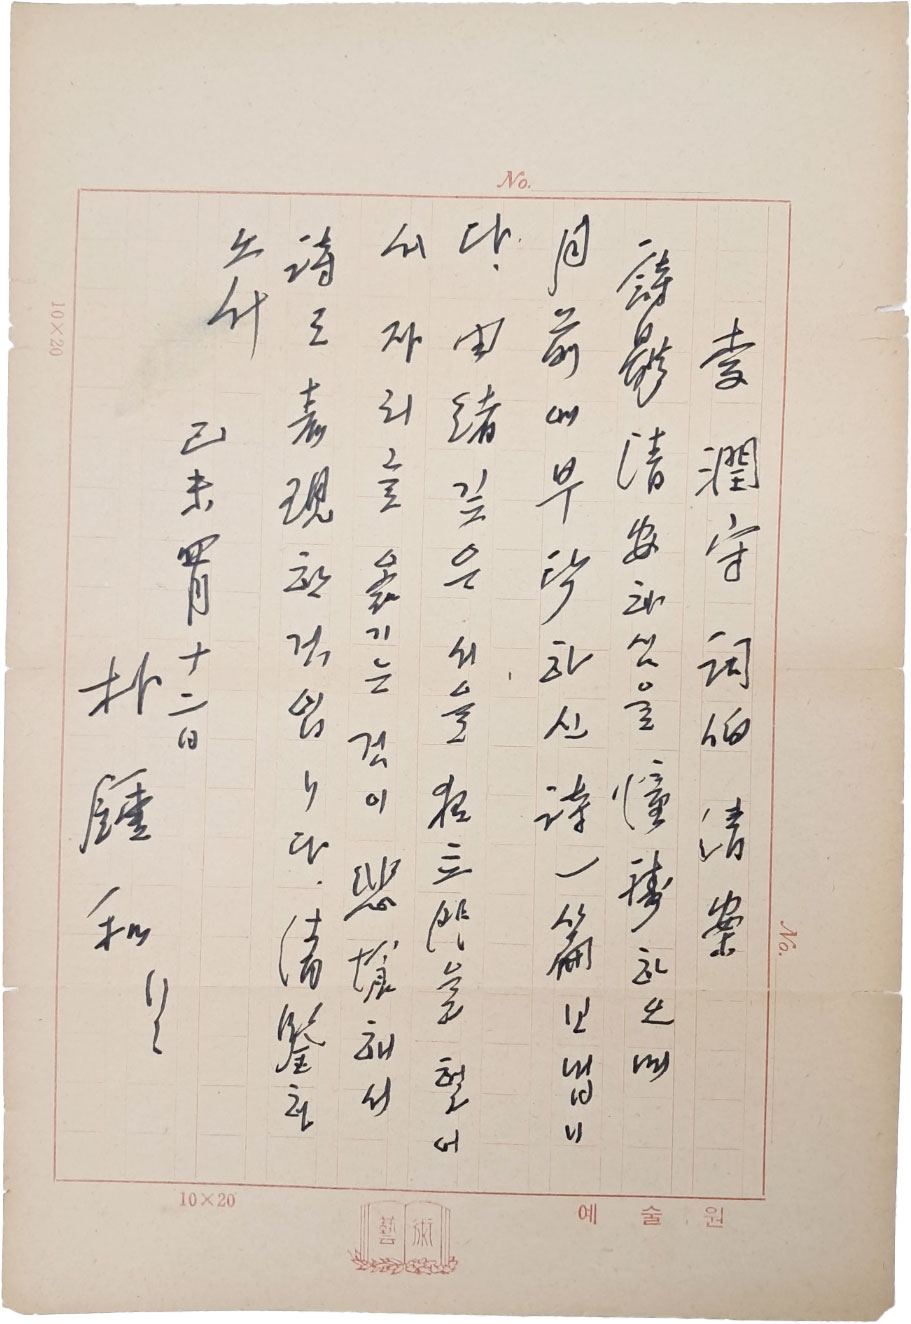 No.
李潤守詞伯 清案
清安하심을 憧禱하오며
月前에 부탁하신 詩 一篇 보냅니
다. 由緒 깊은 서울 獨立門을 헐어
서 자리를 옮기는 것이 悲愴해서
詩로 表現한 것입니다. 清鑒하
소서
己未 四月 十二日
朴鍾和
10×20
No.
10×20
藝術
예술원